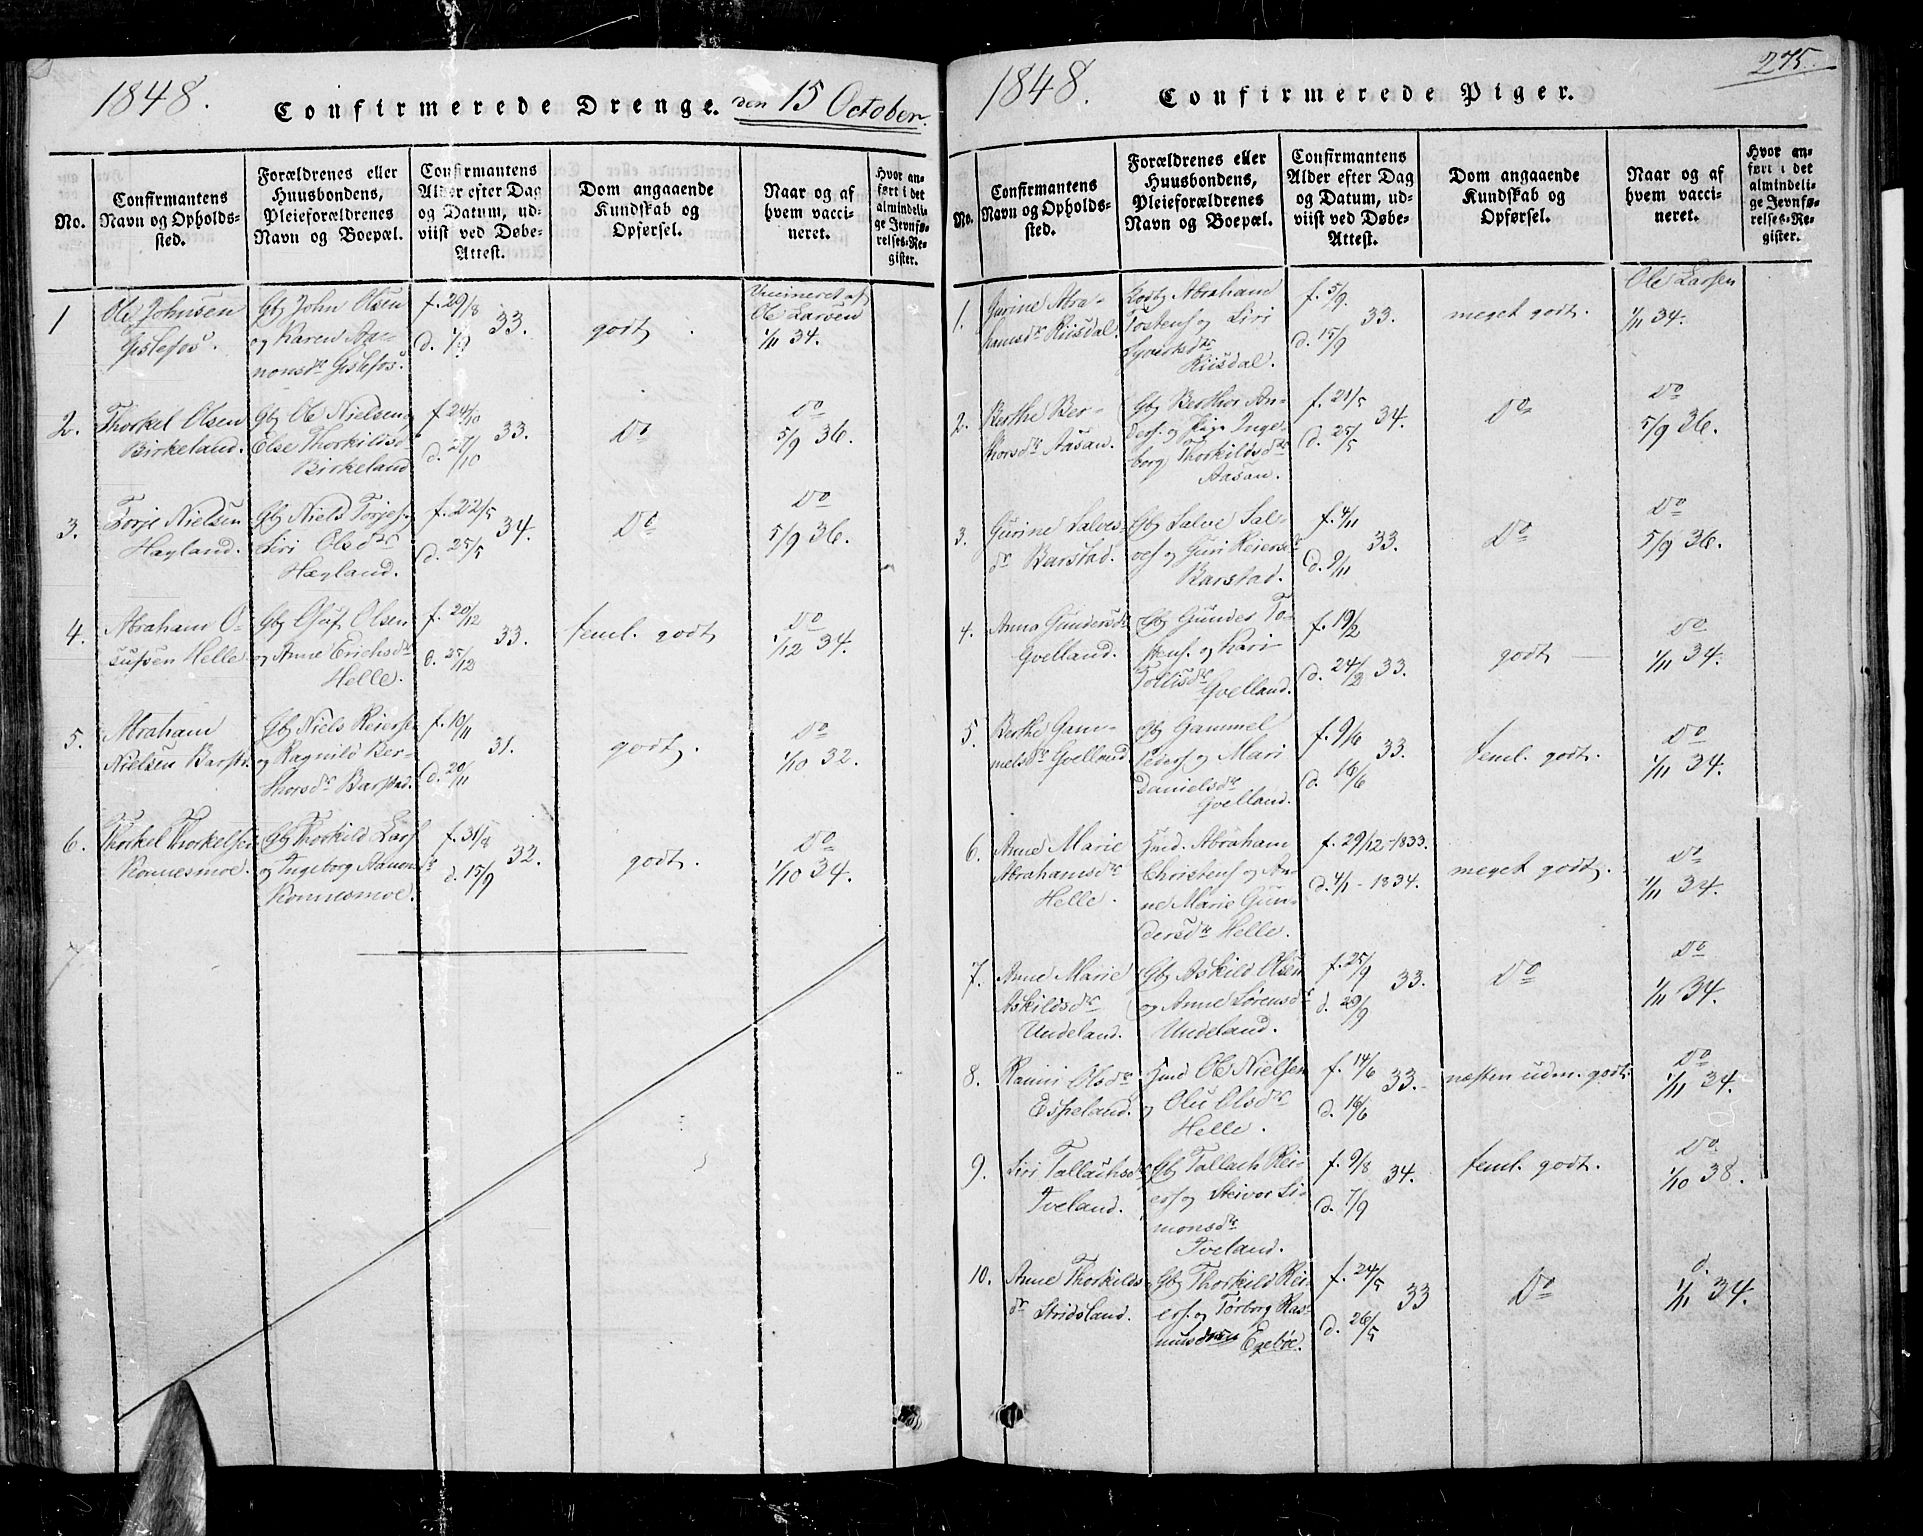 1848.
Confirmerede Drenge. den 15 October.
No.
Confirmantens Navn og Opholdssted.
Forældrenes eller Huusbondens, Pleieforældrenes Navn og Boepæl.
Confirmantens Alder efter Dag og Datum, udviist ved Døbe-Attest.
Dom angaaende Kundskab og Opførsel.
Naar og af hvem vaccineret.
Hvor anført i det almindelige Jevnførelses-Register.
1 Ole Johnsen Gislefos. Gbr John Olsen og Karen Aanonsdr Gislefos. f. 29/8 d. 1/9 33. godt. Vaccineret af Ole Larsen 1/11 34.
2. Thorkel Olsen Birkeland. Gbr Ole Nielsen og Else Thorkildsd Birkeland f. 24/10 d. 27/10 33. Do Do 5/9 36.
3. Torje Nielsen Høyland. Gbr Niels Torjes. og Siri Olsdr Høyland. f. 22/5 d. 25/5 34. Do Do 5/9 36.
4. Abraham Osufsen Helle Gbr Osuf Olsen og Anne Erichsdr Helle. f. 20/12 d. 25/12 33. teml. godt Do 1/12 34.
5. Abraham Nielsen Barst. Gbr Niels Reiersen og Ragnild Berthorsdr Barstad. f. 10/11 d. 20/11 31. godt. Do 1/10 32.
6. Thorkel Thorkelsen Konnesmoe. Gbr Thorkild Larsf og Ingeborg Aanonsdr Konnesmoe. f. 31/8 d. 15/9 32. godt. Do 1/10 34.
1848.
Confirmerede Piger.
275.
No.
Confirmantens Navn og Opholdssted.
Forældrenes eller Huusbondens, Pleieforældrenes Navn og Boepæl.
Confirmantens Alder efter Dag og Datum, udviist ved Døbe-Attest.
Dom angaaende Kundskab og Opførsel.
Naar og af hvem vaccineret.
Hvor anført i det almindelige Jevnførelses-Register.
1. Gurine Abrahamsdr Riisdal. Abraham Tostensf og Siri Syvertsdr Riisdal. f. 5/9. d. 15/9 33. meget godt. Ole Larsen 1/11 34.
2. Berthe Berthorsdr Aasan. Gbr Berthor Andersf. og Pige Ingeborg Thorkildsdr Aasan. f. 21/5 d. 25/5 34. Do Do 5/9 36.
3. Gurine Salvesdr Barstad. Gbr Salve Salvesf og Guri Reiersdr Barstad. f. 4/11 d. 9/11 33. Do Do 5/9 36.
4. Anna Gundersdr Gvelland. Gbr Gunder Tostensf. og Kari Tollisdr Gvelland. f. 19/2 d. 24/2 33. godt Do 1/11 34.
5. Berthe Gammelsdr Gvelland Gbr Gammel Pedersf og Mari Danielsdr Gvelland. f. 9/6 d. 16/6 33. teml. godt. Do 1/11 34.
6. Anne Marie Abrahamsdr Helle. Hmd. Abraham Christensf og Anne Marie Gundersdr Helle. f. 29/12-1833. d. 4/1 - 1834. meget godt. Do 1/11 34.
7. Anne Marie Askildsdr Undeland. Gbr Askild Olsen og Anne Sørensdr Undeland. f. 25/9 d. 29/9 33. Do Do 1/11 34.
8. Ranni Olsdr Espeland. Hmd Ole Nielsen og Olu Olsdr Helle. f. 14/6 d. 16/6 33. næsten udm. godt. Do 1/11 34.
9. Siri Tallachsdr Tveland. Gbr Tallach Reiersf og Steivor Simonsdr Tveland. f. 9/8 d. 7/9 34. teml. godt. Do 1/10 38.
10. Anne Thorkildsdr Stridsland. Gbr Thorkild Reiersf. og Torborg Rasmusdren Egebøe. f. 24/5 d. 26/5 33 Do Do 1/11 34.